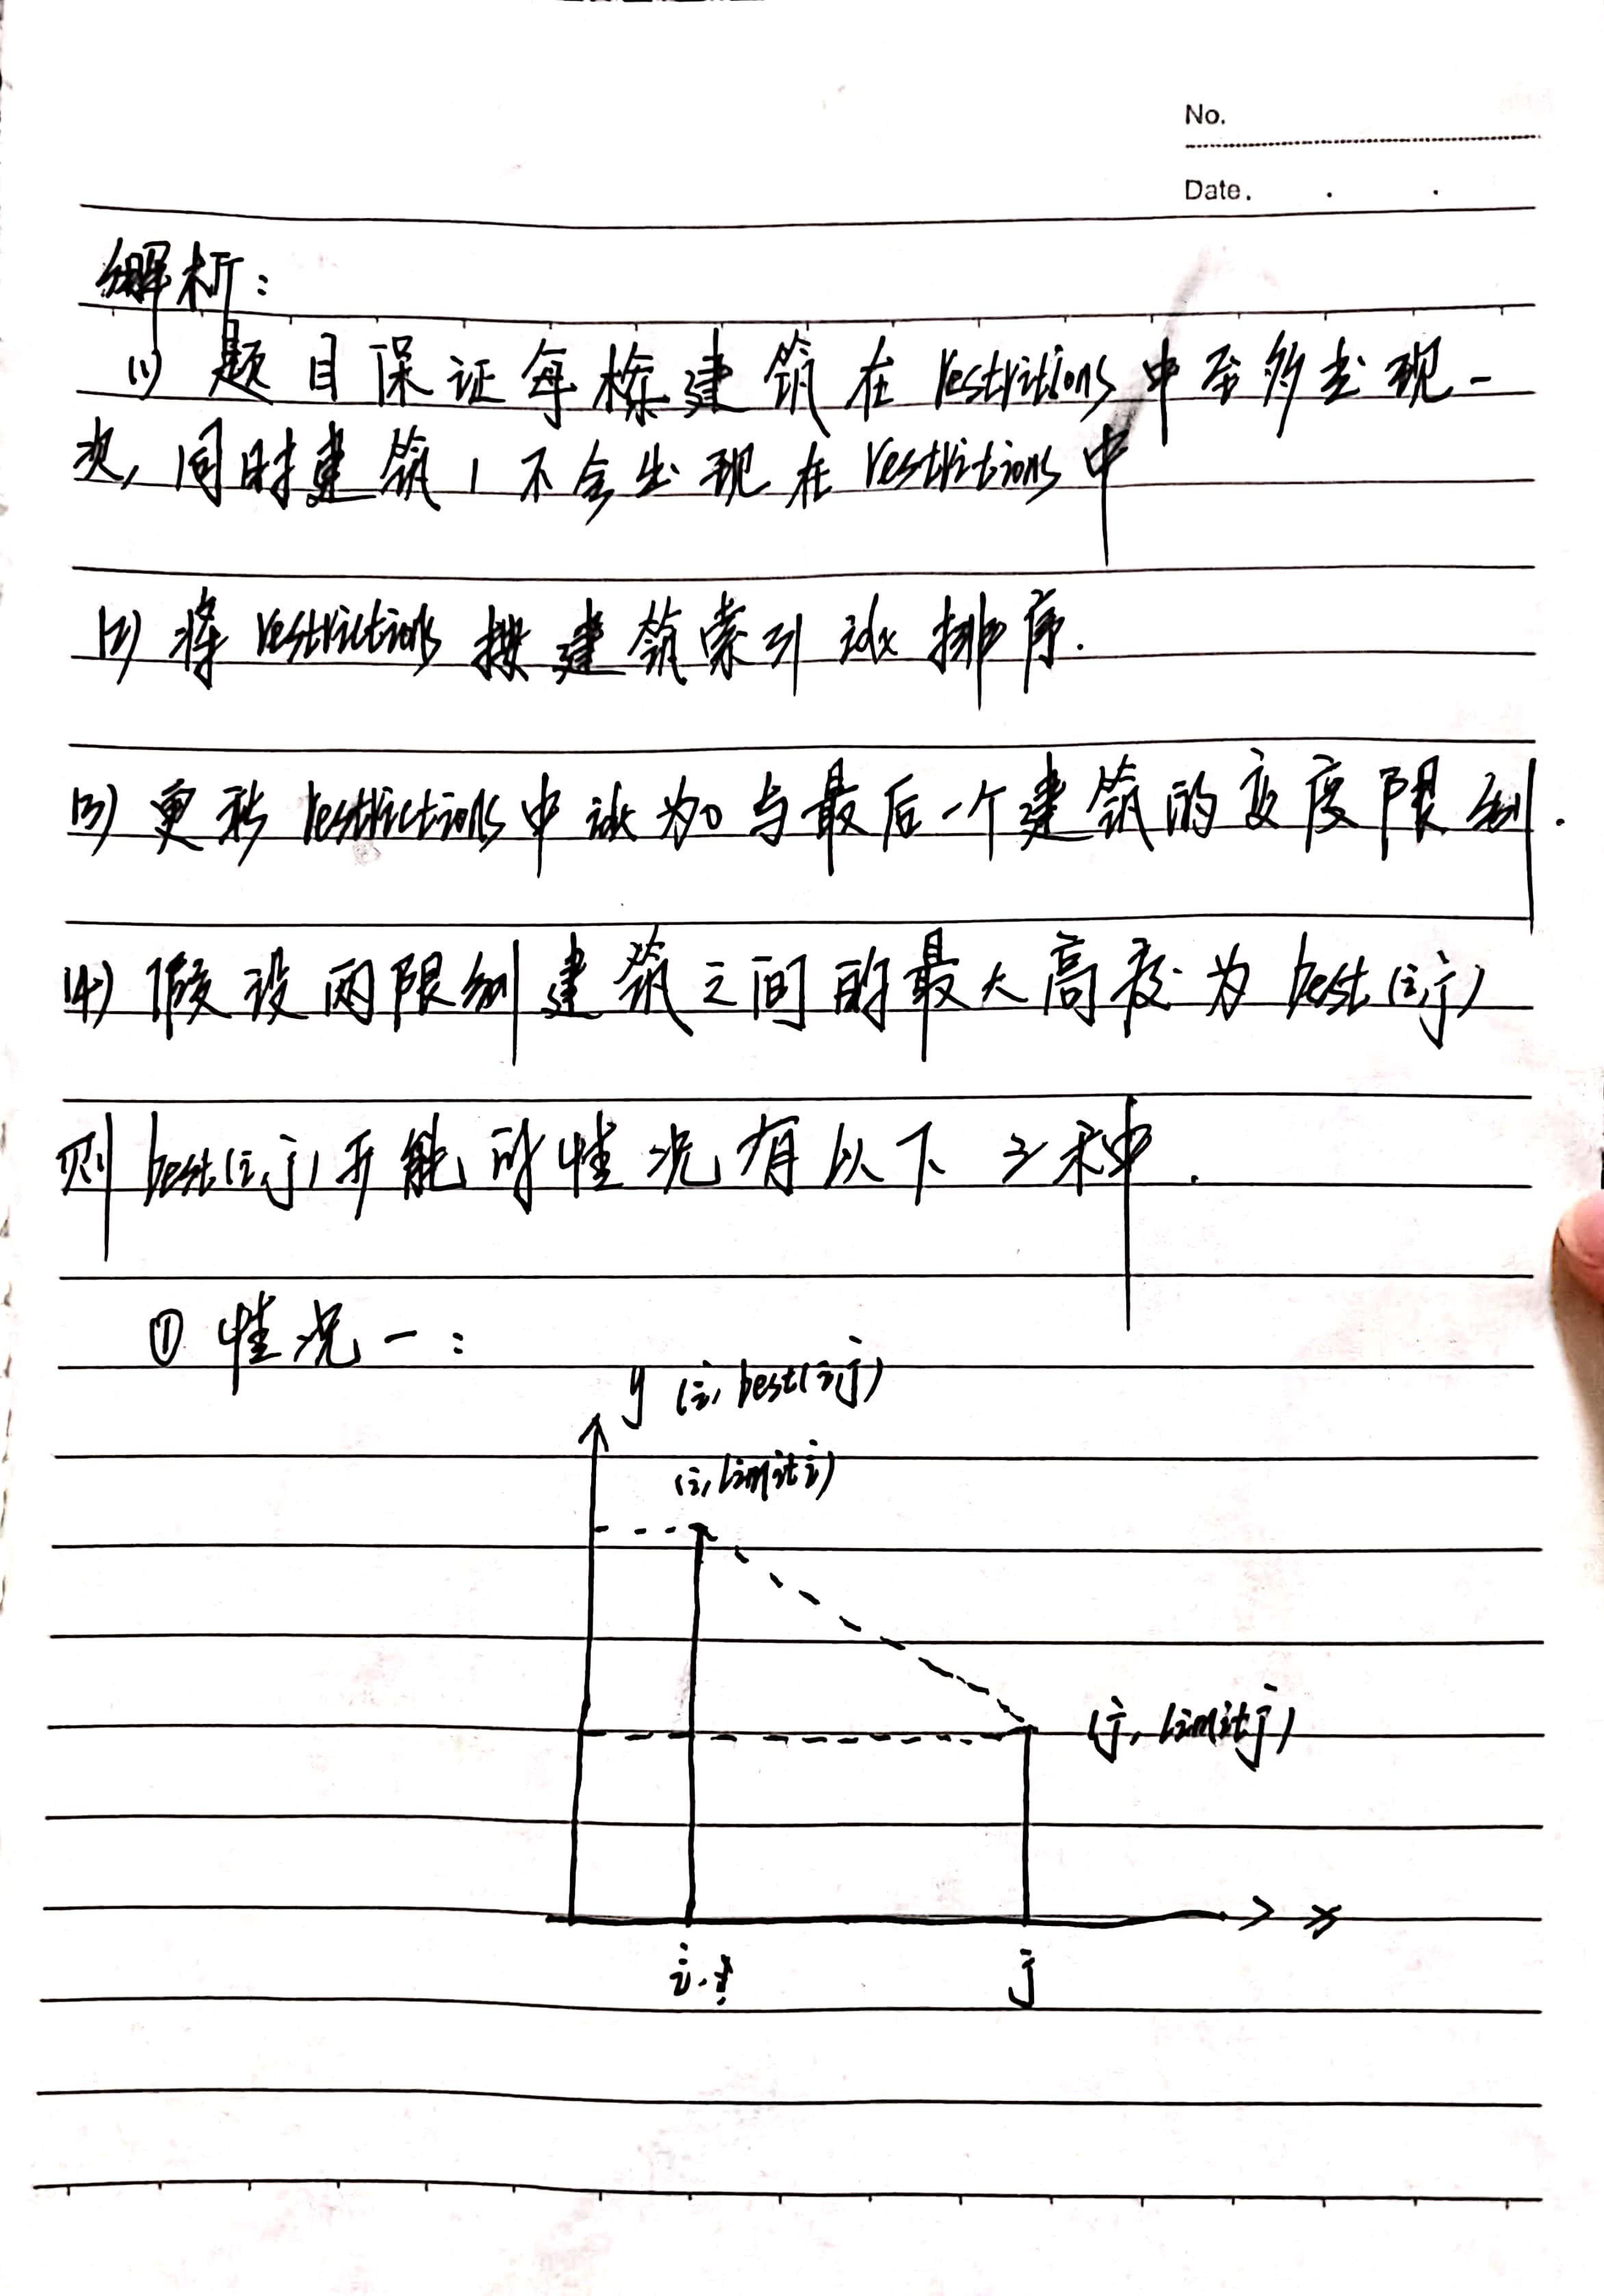 No.
Date.
解析：
(1) 题目保证每栋建筑在 restritions 中至多出现一
次，同时建筑 1 不会出现在 restritions 中
(2) 将 restrictions 按建筑索引 idx 排序.
(3) 更新 restrictions 中 idx 为0 与最后一个建筑的高度限制.
(4) 假设两限制建筑之间的最大高度为 best(i,j)
则 best(i,j) 可能的情况有以下 3 种.
① 情况一：
y (i, best(i,j)
(i, limit i)
(j, limit j)
x
i
j